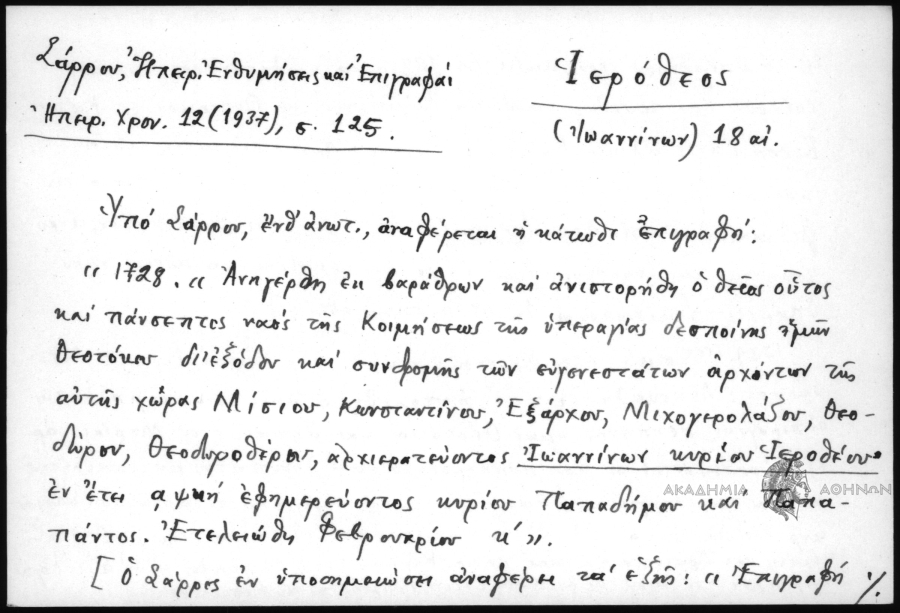 Σάρρου, Ἠπειρ. Ἐνθυμήσεις καὶ Ἐπιγραφαὶ
Ἠπειρ. Χρον. 12 (1937), σ. 125.
Ἱερόθεος
(Ἰωαννίνων) 18 αἰ.
Ὑπὸ Σάρρου, ἔνθ' ἀνωτ., ἀναφέρεται ἡ κάτωθι ἐπιγραφή:
"1728. "Ἀνηγέρθη ἐκ βαράθρων καὶ ἀνιστορήθη ὁ θεῖος οὗτος
καὶ πάνσεπτος ναὸς τῆς Κοιμήσεως τῆς ὑπεραγίας δεσποίνης ἡμῶν
Θεοτόκου δι' ἐξόδου καὶ συνδρομῆς τῶν εὐγενεστάτων ἀρχόντων τῆς
αὐτῆς χώρας Μίσιου, Κωνσταντίνου, Ἐξάρχου, Μιχογερολάζου, Θεο-
δώρου, Θεοδωροθέρου, ἀρχιερατεύοντος Ἰωαννίνων κυρίου Ἱεροθέου
ἐν ἔτει αψκή ἐφημερεύοντος κυρίου Παπαδήμου καὶ Παπα-
πάντος. Ἐτελειώθη Φεβρουαρίου κ'".
[ὁ Σάρρος ἐν ὑποσημειώσει ἀναφέρει τὰ ἑξῆς: "Ἐπιγραφὴ ./.
ΑΚΑΔΗΜΙΑ ΑΘΗΝΩΝ